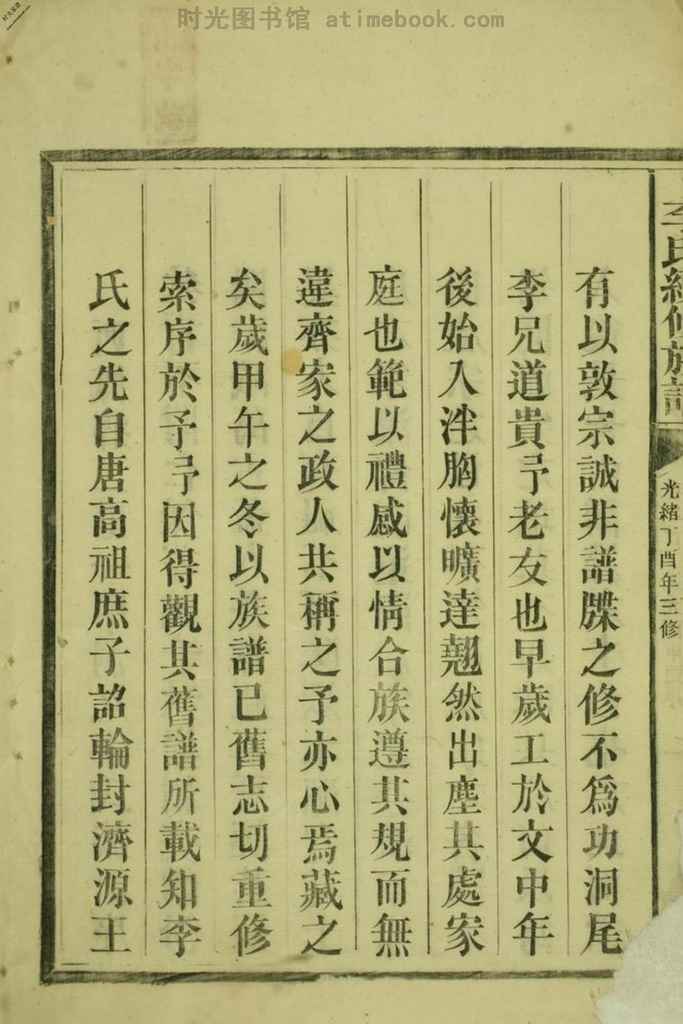 时光图书馆 atimebook.com
李氏續修族譜
光緒丁酉年三修
有以敦宗誠非譜牒之修不爲功洞尾
李兄道貴予老友也早歲工於文中年
後始入泮胸懷曠達翹然出塵其處家
庭也範以禮感以情合族遵其規而無
違齊家之政人共稱之予亦心焉藏之
矣歲甲午之冬以族譜已舊志切重修
索序於予予因得觀其舊譜所載知李
氏之先自唐高祖庶子詔輪封濟源王